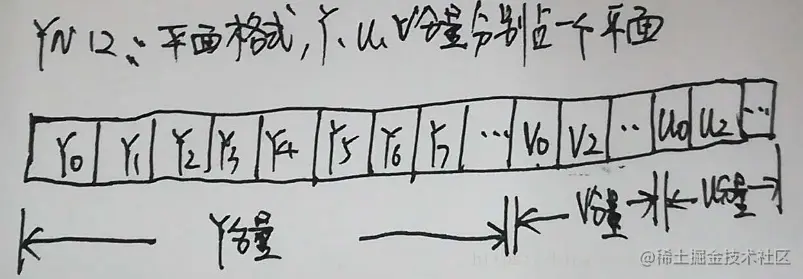 YV12：平面格式，Y、U、V分量分别占一个平面
Y0 Y1 Y2 Y3 Y4 Y5 Y6 Y7 … V0 V2 .. U0 U2 …
Y分量 V分量 U分量
@稀土掘金技术社区